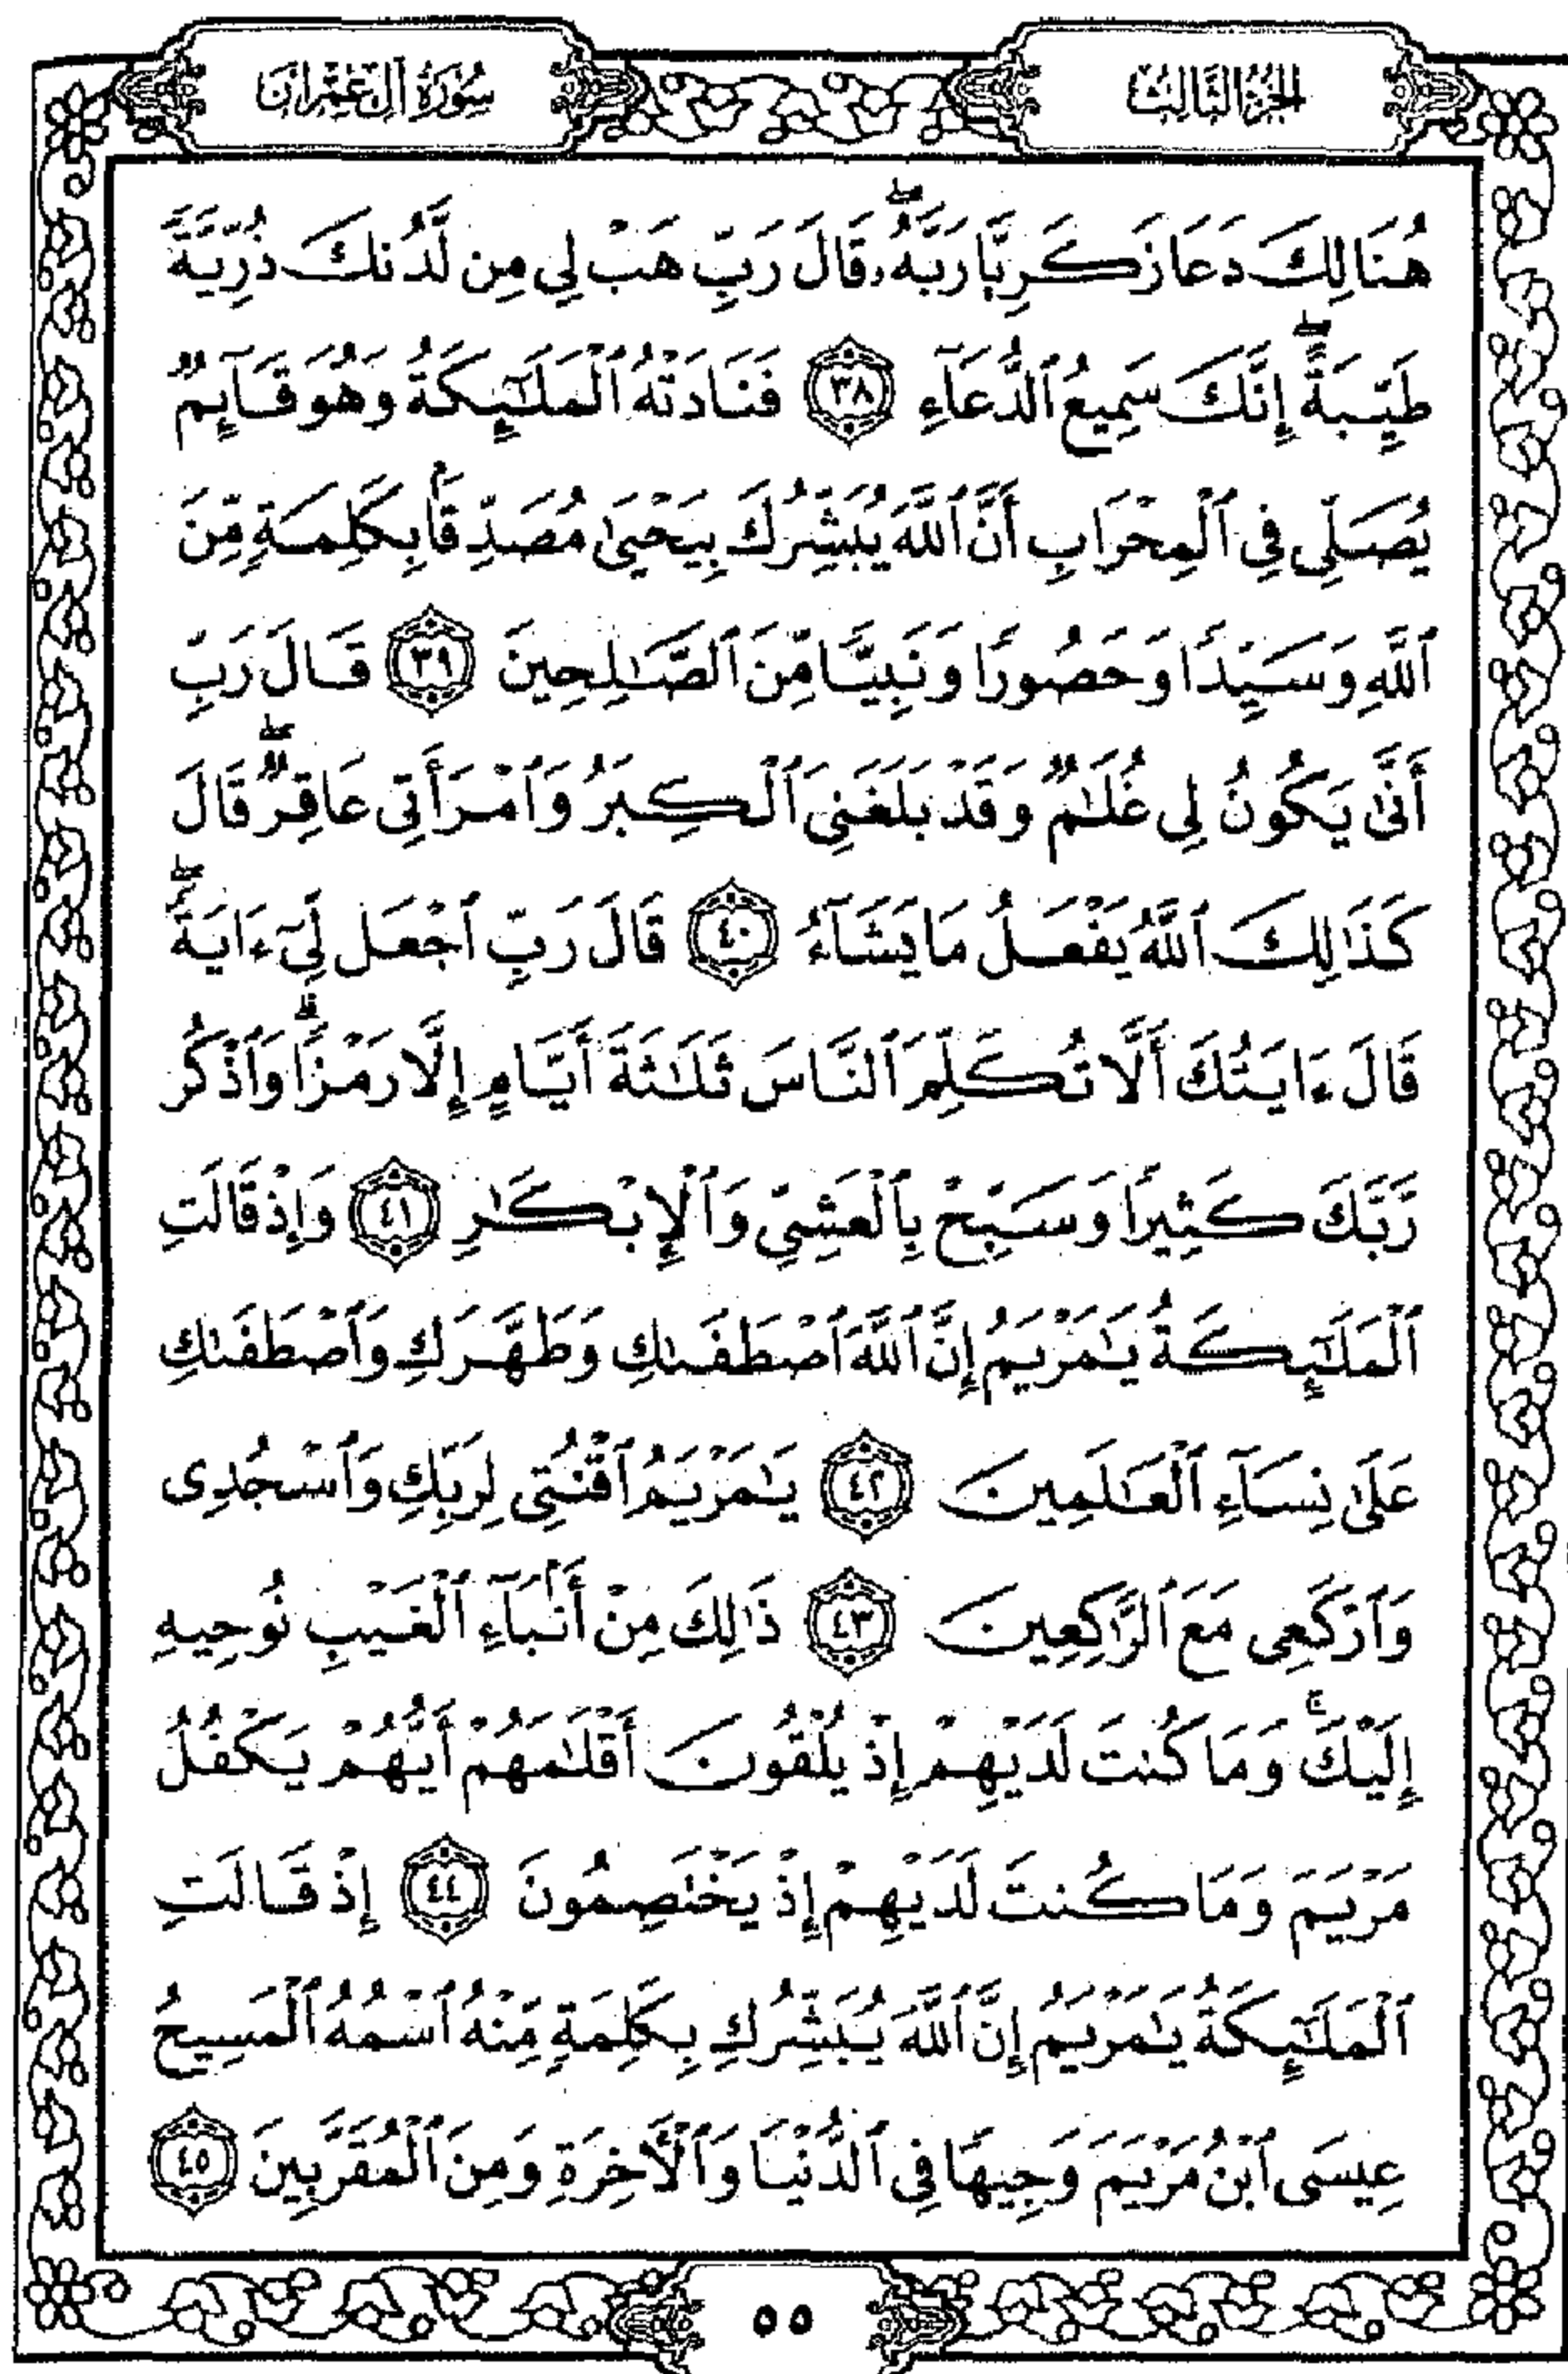 الجزء الثالث
سورة آل عمران
هُنَالِكَ دَعَا زَكَرِيَّا رَبَّهُۥ ۖ قَالَ رَبِّ هَبْ لِى مِن لَّدُنكَ ذُرِّيَّةً
طَيِّبَةً ۖ إِنَّكَ سَمِيعُ ٱلدُّعَآءِ ٣٨ فَنَادَتْهُ ٱلْمَلَـٰٓئِكَةُ وَهُوَ قَآئِمٌ
يُصَلِّى فِى ٱلْمِحْرَابِ أَنَّ ٱللَّهَ يُبَشِّرُكَ بِيَحْيَىٰ مُصَدِّقًۢا بِكَلِمَةٍ مِّنَ
ٱللَّهِ وَسَيِّدًا وَحَصُورًا وَنَبِيًّا مِّنَ ٱلصَّـٰلِحِينَ ٣٩ قَالَ رَبِّ
أَنَّىٰ يَكُونُ لِى غُلَـٰمٌ وَقَدْ بَلَغَنِىَ ٱلْكِبَرُ وَٱمْرَأَتِى عَاقِرٌ ۖ قَالَ
كَذَٰلِكَ ٱللَّهُ يَفْعَلُ مَا يَشَآءُ ٤٠ قَالَ رَبِّ ٱجْعَل لِّىٓ ءَايَةً ۖ
قَالَ ءَايَتُكَ أَلَّا تُكَلِّمَ ٱلنَّاسَ ثَلَـٰثَةَ أَيَّامٍ إِلَّا رَمْزًا ۗ وَٱذْكُر
رَّبَّكَ كَثِيرًا وَسَبِّحْ بِٱلْعَشِىِّ وَٱلْإِبْكَـٰرِ ٤١ وَإِذْ قَالَتِ
ٱلْمَلَـٰٓئِكَةُ يَـٰمَرْيَمُ إِنَّ ٱللَّهَ ٱصْطَفَىٰكِ وَطَهَّرَكِ وَٱصْطَفَىٰكِ
عَلَىٰ نِسَآءِ ٱلْعَـٰلَمِينَ ٤٢ يَـٰمَرْيَمُ ٱقْنُتِى لِرَبِّكِ وَٱسْجُدِى
وَٱرْكَعِى مَعَ ٱلرَّٰكِعِينَ ٤٣ ذَٰلِكَ مِنْ أَنۢبَآءِ ٱلْغَيْبِ نُوحِيهِ
إِلَيْكَ ۚ وَمَا كُنتَ لَدَيْهِمْ إِذْ يُلْقُونَ أَقْلَـٰمَهُمْ أَيُّهُمْ يَكْفُلُ
مَرْيَمَ وَمَا كُنتَ لَدَيْهِمْ إِذْ يَخْتَصِمُونَ ٤٤ إِذْ قَالَتِ
ٱلْمَلَـٰٓئِكَةُ يَـٰمَرْيَمُ إِنَّ ٱللَّهَ يُبَشِّرُكِ بِكَلِمَةٍ مِّنْهُ ٱسْمُهُ ٱلْمَسِيحُ
عِيسَى ٱبْنُ مَرْيَمَ وَجِيهًا فِى ٱلدُّنْيَا وَٱلْـَٔاخِرَةِ وَمِنَ ٱلْمُقَرَّبِينَ ٤٥
٥٥